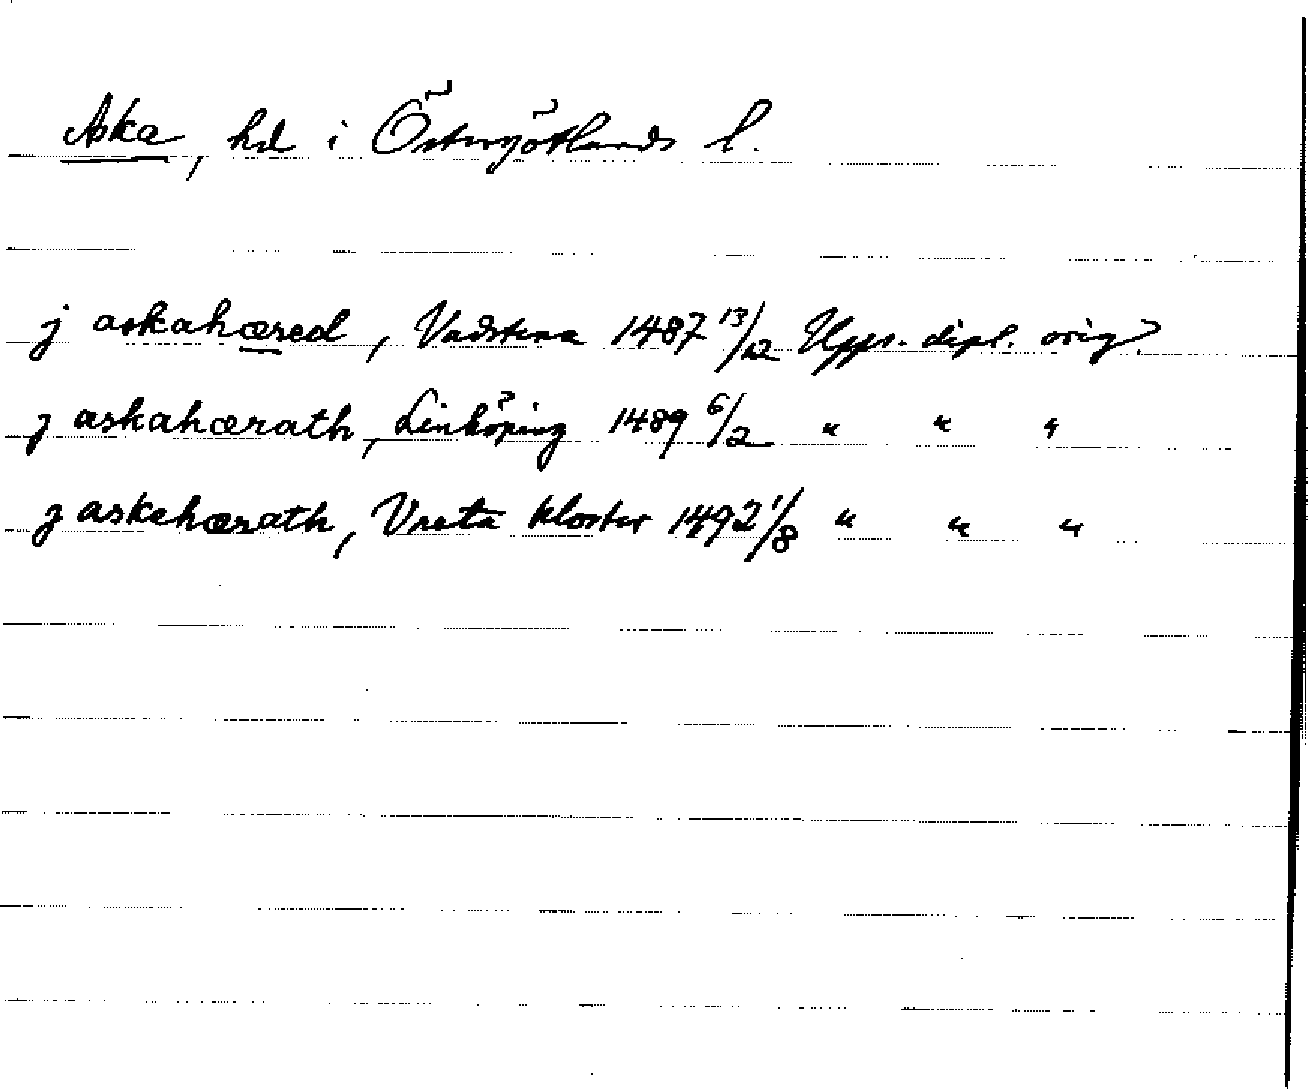 Aska, hd i Östergötlands l.
j askahæred, Vadstena 1487 13/12 Upps. dipl. orig.
j askahærath, Linköping 1489 6/2 " " "
j askehærath, Vreta kloster 1492 1/8 " " "